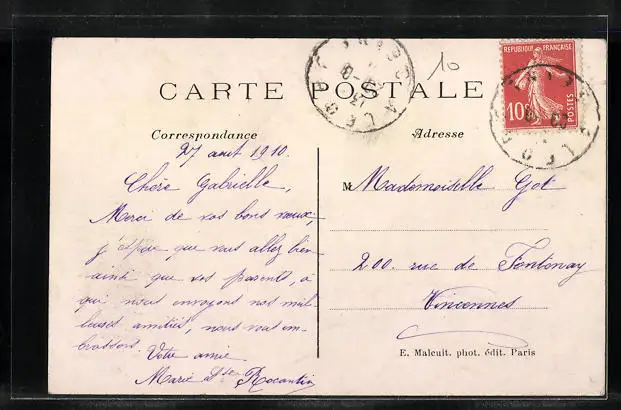 CARTE POSTALE
10
REPUBLIQUE FRANÇAISE
10c
POSTES
Correspondance
Adresse
27 aout 1910.
Chère Gabrielle,
Merci de vos bons vœux,
j'espère que vous allez bien
ainsi que vos parents, à
qui nous envoyons nos meil-
leures amitiés, nous vous em-
brassons.
Votre amie
Marie
M Mademoiselle Got
200. rue de Fontenay
Vincennes
E. Malcuit. phot. édit. Paris